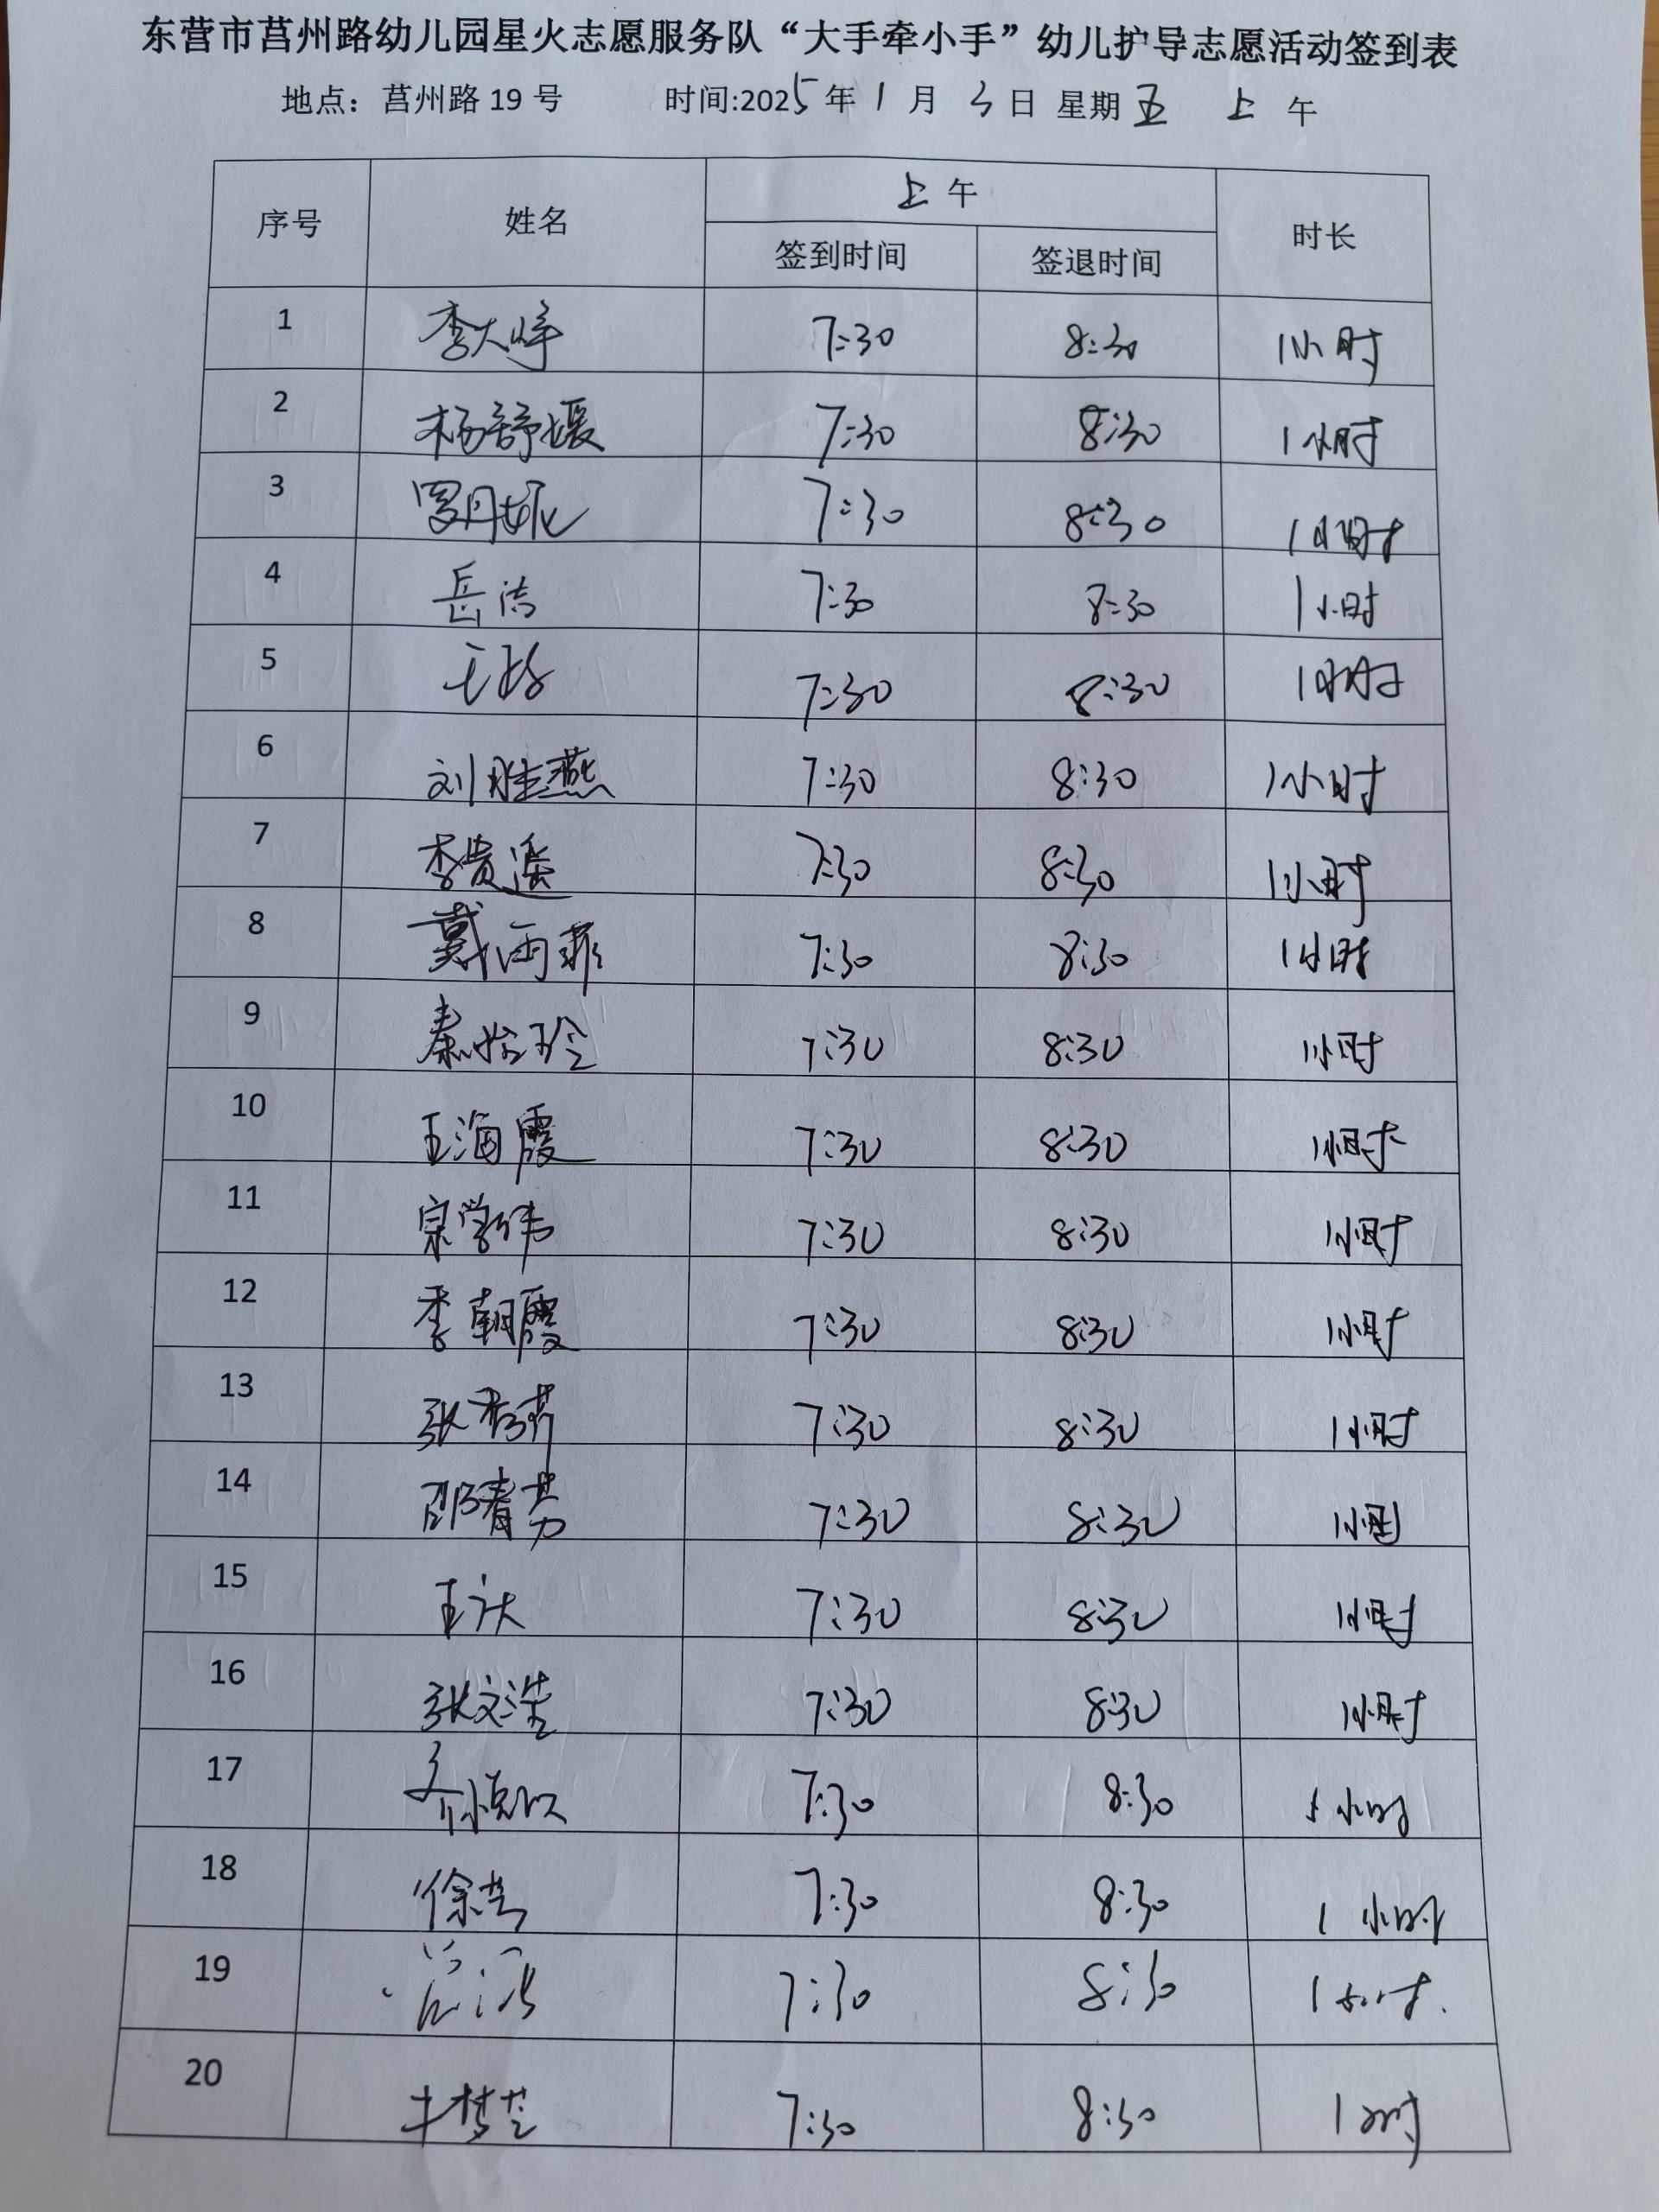 东营市莒州路幼儿园星火志愿服务队“大手牵小手”幼儿护导志愿活动签到表
地点：莒州路 19 号 时间:2025年1月3日 星期五 上午
序号 姓名 上午 时长
签到时间 签退时间
1 李大峰 7:30 8:30 1小时
2 杨舒媛 7:30 8:30 1小时
3 罗丹妮 7:30 8:30 1小时
4 岳洁 7:30 8:30 1小时
5 7:30 8:30 1小时
6 刘胜燕 7:30 8:30 1小时
7 李贵遥 7:30 8:30 1小时
8 戴雨菲 7:30 8:30 1小时
9 秦怡玲 7:30 8:30 1小时
10 王海霞 7:30 8:30 1小时
11 宗学伟 7:30 8:30 1小时
12 李朝霞 7:30 8:30 1小时
13 张秀 7:30 8:30 1小时
14 邵春芳 7:30 8:30 1小时
15 王 7:30 8:30 1小时
16 张文浩 7:30 8:30 1小时
17 7:30 8:30 1小时
18 徐 7:30 8:30 1小时
19 7:30 8:30 1小时
20 牛梦芸 7:30 8:30 1时